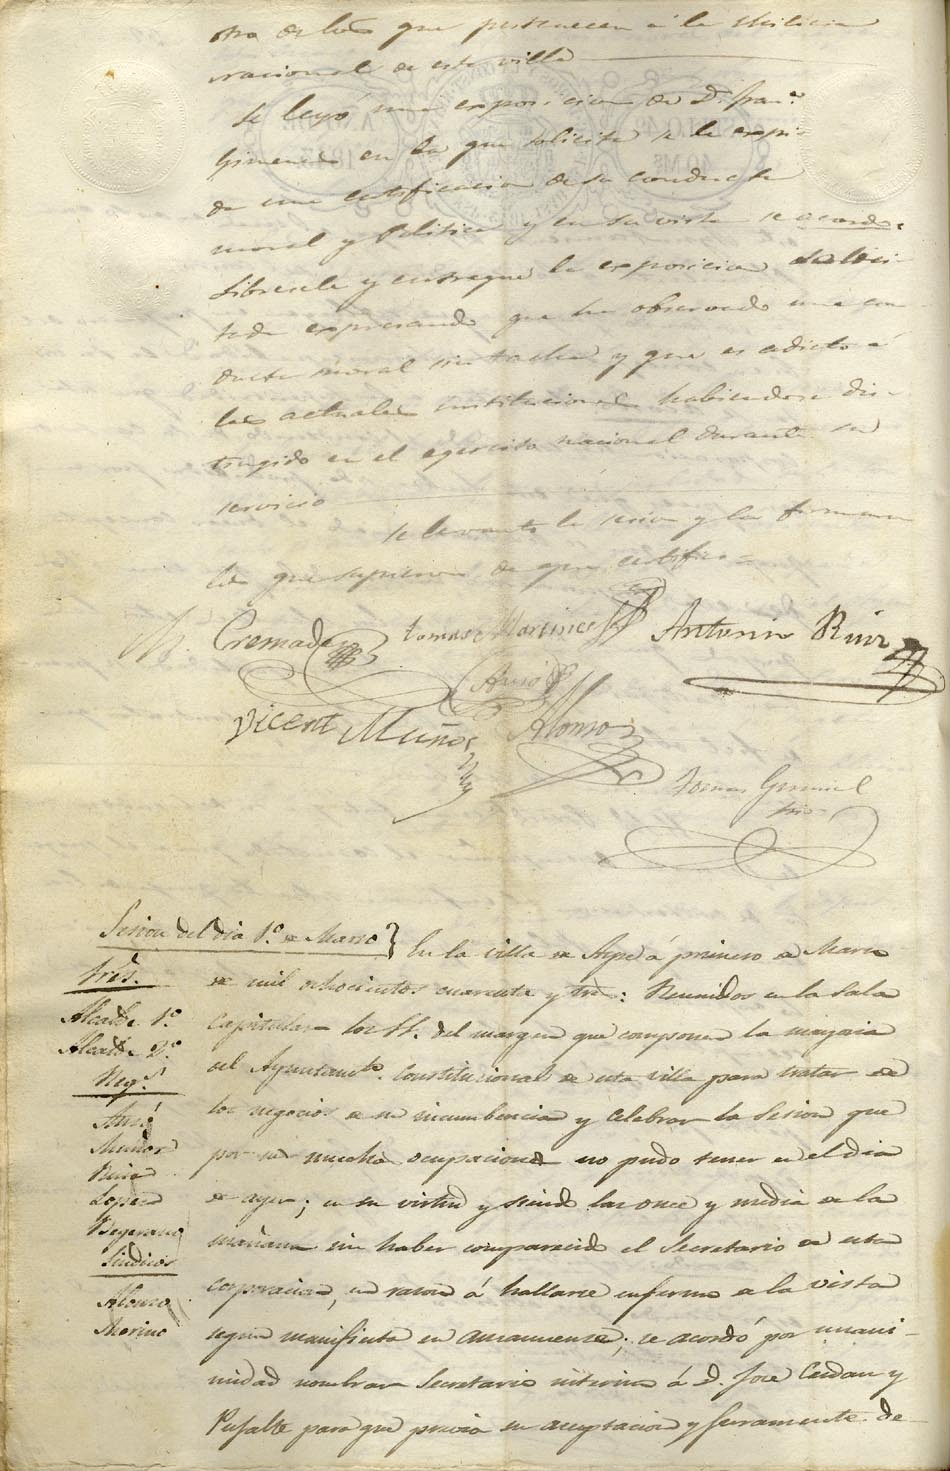 otra de los que pertenecen á la Milicia
nacional de esta villa
Se leyó una exposicion de D. Fran.co
Gimenez en la que solicita se le expi-
da una certificacion de su conducta
moral y Politica y en su vista se acordó
librarsele y entregue la exposicion
expresando que ha observado una con
ducta moral sin tacha y que es adicto á
las actuales instituciones habiendose dis-
tinguido en el egercito nacional durante su
servicio
Se levantó la sesion y la firmaron
los que supieron de que certifico =
Cremades
Tomas Martinez
Antonio Ruiz
Vicent Muñoz
Alonso
Tomas
Sesion del dia 1.o de Marzo
Alcalde 1.o
Alcalde 2.o
Reg.s
Muñoz
Ruiz
Lopez
Begerano
Sindicos
Alonso
Merino
En la villa de Aspe á primero de Marzo
de mil ochocientos cuarenta y tres: Reunidos en la Sala
Capitular los SS. del margen que componen la mayoria
del Ayuntam.to Constitucional de esta villa para tratar de
los negocios de su incumbencia y celebrar la Sesion que
por sus muchas ocupaciones no pudo tener en el dia
de ayer; en su virtud y siendo las once y media de la
mañana sin haber comparecido el Secretario de esta
corporacion, en razon á hallarse enfermo de la vista
segun manifiesta su amanuense; se acordó por unani-
midad nombrar Secretario interino á D. Jose Cerdan y
Pujalte para que previa su aceptacion y juramento de-